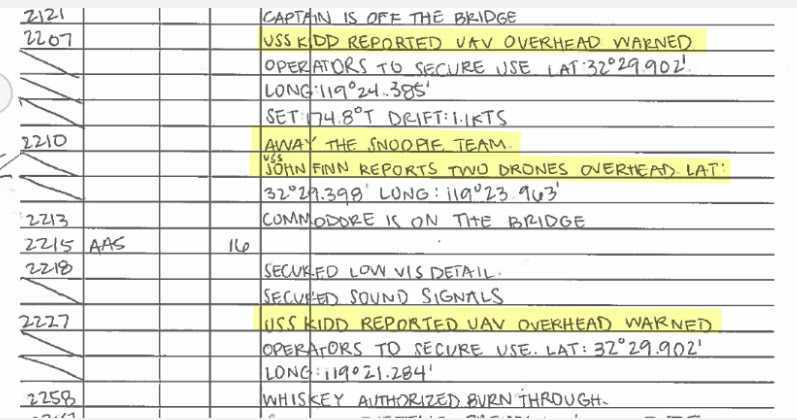 2121 CAPTAIN IS OFF THE BRIDGE
2207 USS KIDD REPORTED UAV OVERHEAD WARNED
OPERATORS TO SECURE USE. LAT:32°29.902'
LONG:119°24.385'
SET:174.8°T DRIFT:1.1KTS
2210 AWAY THE SNOOPIE TEAM.
USS JOHN FINN REPORTS TWO DRONES OVERHEAD LAT:
32°29.398' LONG:119°23.963'
2213 COMMODORE IS ON THE BRIDGE
2215 AAS 16
2218 SECURED LOW VIS DETAIL.
SECURED SOUND SIGNALS
2227 USS KIDD REPORTED UAV OVERHEAD WARNED
OPERATORS TO SECURE USE. LAT:32°29.902'
LONG:119°21.284'
2258 WHISKEY AUTHORIZED BURN THROUGH.